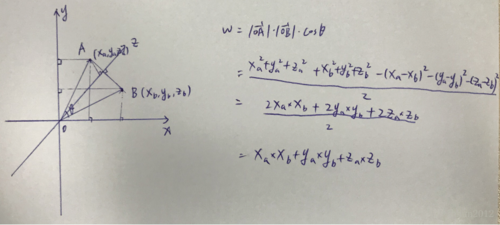 y
A (xa,ya,za)
z
B (xb, yb, zb)
θ
O
x
W = |OA|·|OB|·cosθ
= xa²+ya²+za² + xb²+yb²+zb² -(xa-xb)²-(ya-yb)²-(za-zb)² / 2
= 2xa×xb + 2ya×yb + 2za×zb / 2
= xa×xb+ya×yb+za×zb